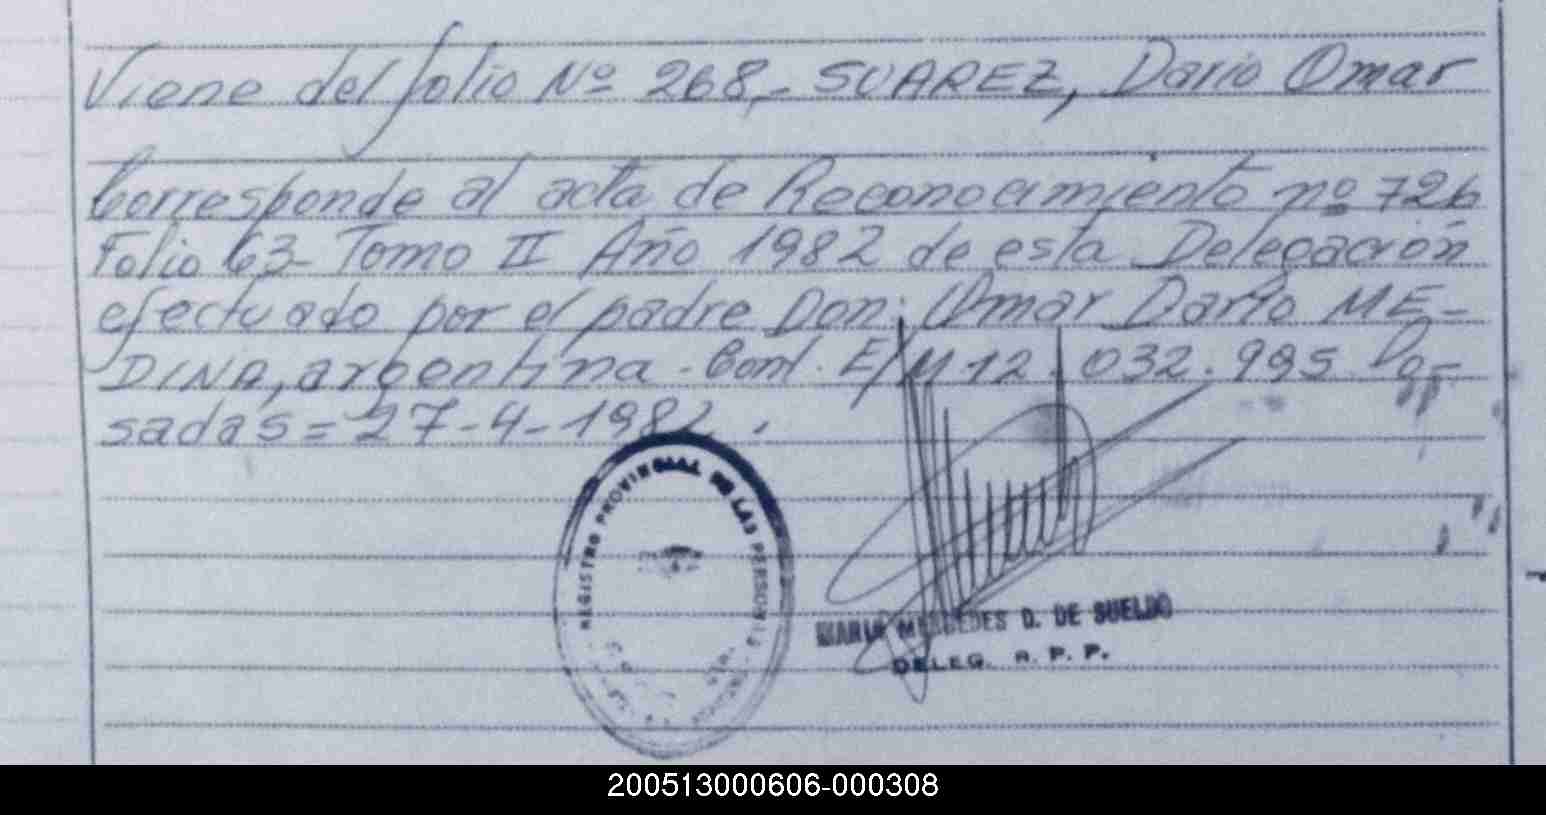 Viene del folio Nº 268,- SUAREZ, Dario Omar
Corresponde al acta de Reconocimiento nº 726
Folio 63- Tomo II Año 1982 de esta Delegación
efectuado por el padre Don: Omar Darío ME-
DINA, argentina. Cont. E/M 12.032.995 Po-
sadas = 27-4-1982.
REGISTRO PROVINCIAL DE LAS PERSONAS
MARIA MERCEDES D. DE SUELDO
DELEG. R. P. P.
200513000606-000308